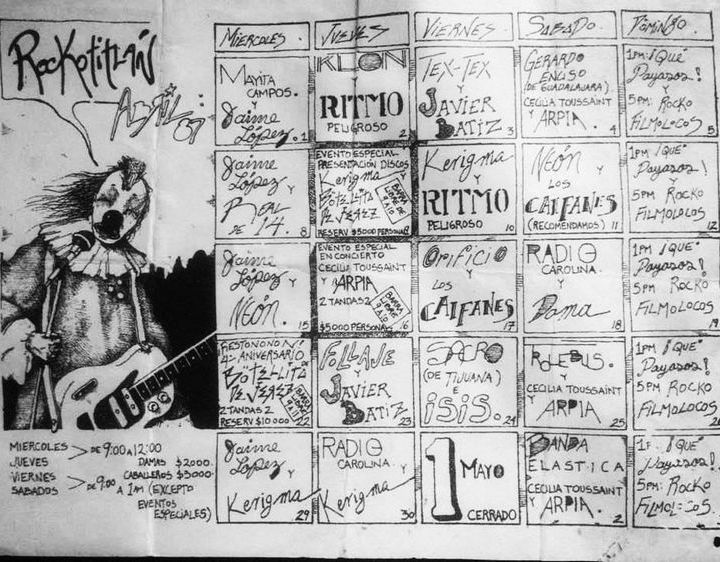 Rockotitlán
Abril 87
MIERCOLES.
JUEVES
VIERNES.
SABADO.
DOMINGO.
MAYITA
CAMPOS.
Y
Jaime
López. 1
KLON
Y
RITMO
PELIGROSO 2
TEX-TEX
Y
JAVIER
BATIZ 3
GERARDO
ENCISO
(DE GUADALAJARA)
CECILIA TOUSSAINT
Y ARPIA. 4
1PM ¡QUÉ
Payasos!
Y
5PM: ROCKO
FILMOLOCOS 5
Jaime
López
Y
REAL
DE 14. 8
EVENTO ESPECIAL
PRESENTACIÓN DISCOS
Kerigma
Y
BÖTELLITA
DE JEREZ
BARRA LIBRE DE
RESERV $5000 PERSONA 9
Kerigma
Y
RITMO
PELIGROSO 10
NEÓN.
Y
LOS
CAIFANES
(RECOMENDAMOS) 11
1PM ¡QUÉ
Payasos!
Y
5PM ROCKO
FILMOLOCOS 12
Jaime
López
Y
NEÓN. 15
EVENTO ESPECIAL
EN CONCIERTO
CECILIA TOUSSAINT
Y ARPIA
2 TANDAS 2
BARRA LIBRE
$5000 PERSONA 16
ORIFICIO
Y
LOS
CAIFANES 17
RADIO
CAROLINA.
Y
Dama 18
1PM ¡QUÉ
Payasos!
Y
5PM ROCKO
FILMOLOCOS 19
4º ANIVERSARIO
BÖTELLITA
DE JEREZ
2 TANDAS 2
BARRA LIBRE
RESERV $10000 22
FOLLAJE
Y
JAVIER
BATIZ 23
SACRO
(DE TIJUANA)
E
ISIS. 24
ROLEBUS.
Y
CECILIA TOUSSAINT
Y
ARPIA 25
1PM ¡QUÉ
Payasos!
Y
5PM ROCKO
FILMOLOCOS
Jaime
López
Y
Kerigma
29
RADIO
CAROLINA.
Y
Kerigma
30
1 MAYO
CERRADO
BANDA
ELASTICA
Y
CECILIA TOUSSAINT
Y
ARPIA. 2
¡QUÉ
¡Payasos!
Y
5PM: ROCKO
MIERCOLES > DE 9:00 A 12:00
JUEVES DAMAS $2000.
VIERNES > DE 9:00 CABALLEROS $3000
SABADOS A 1AM (EXCEPTO
EVENTOS
ESPECIALES)